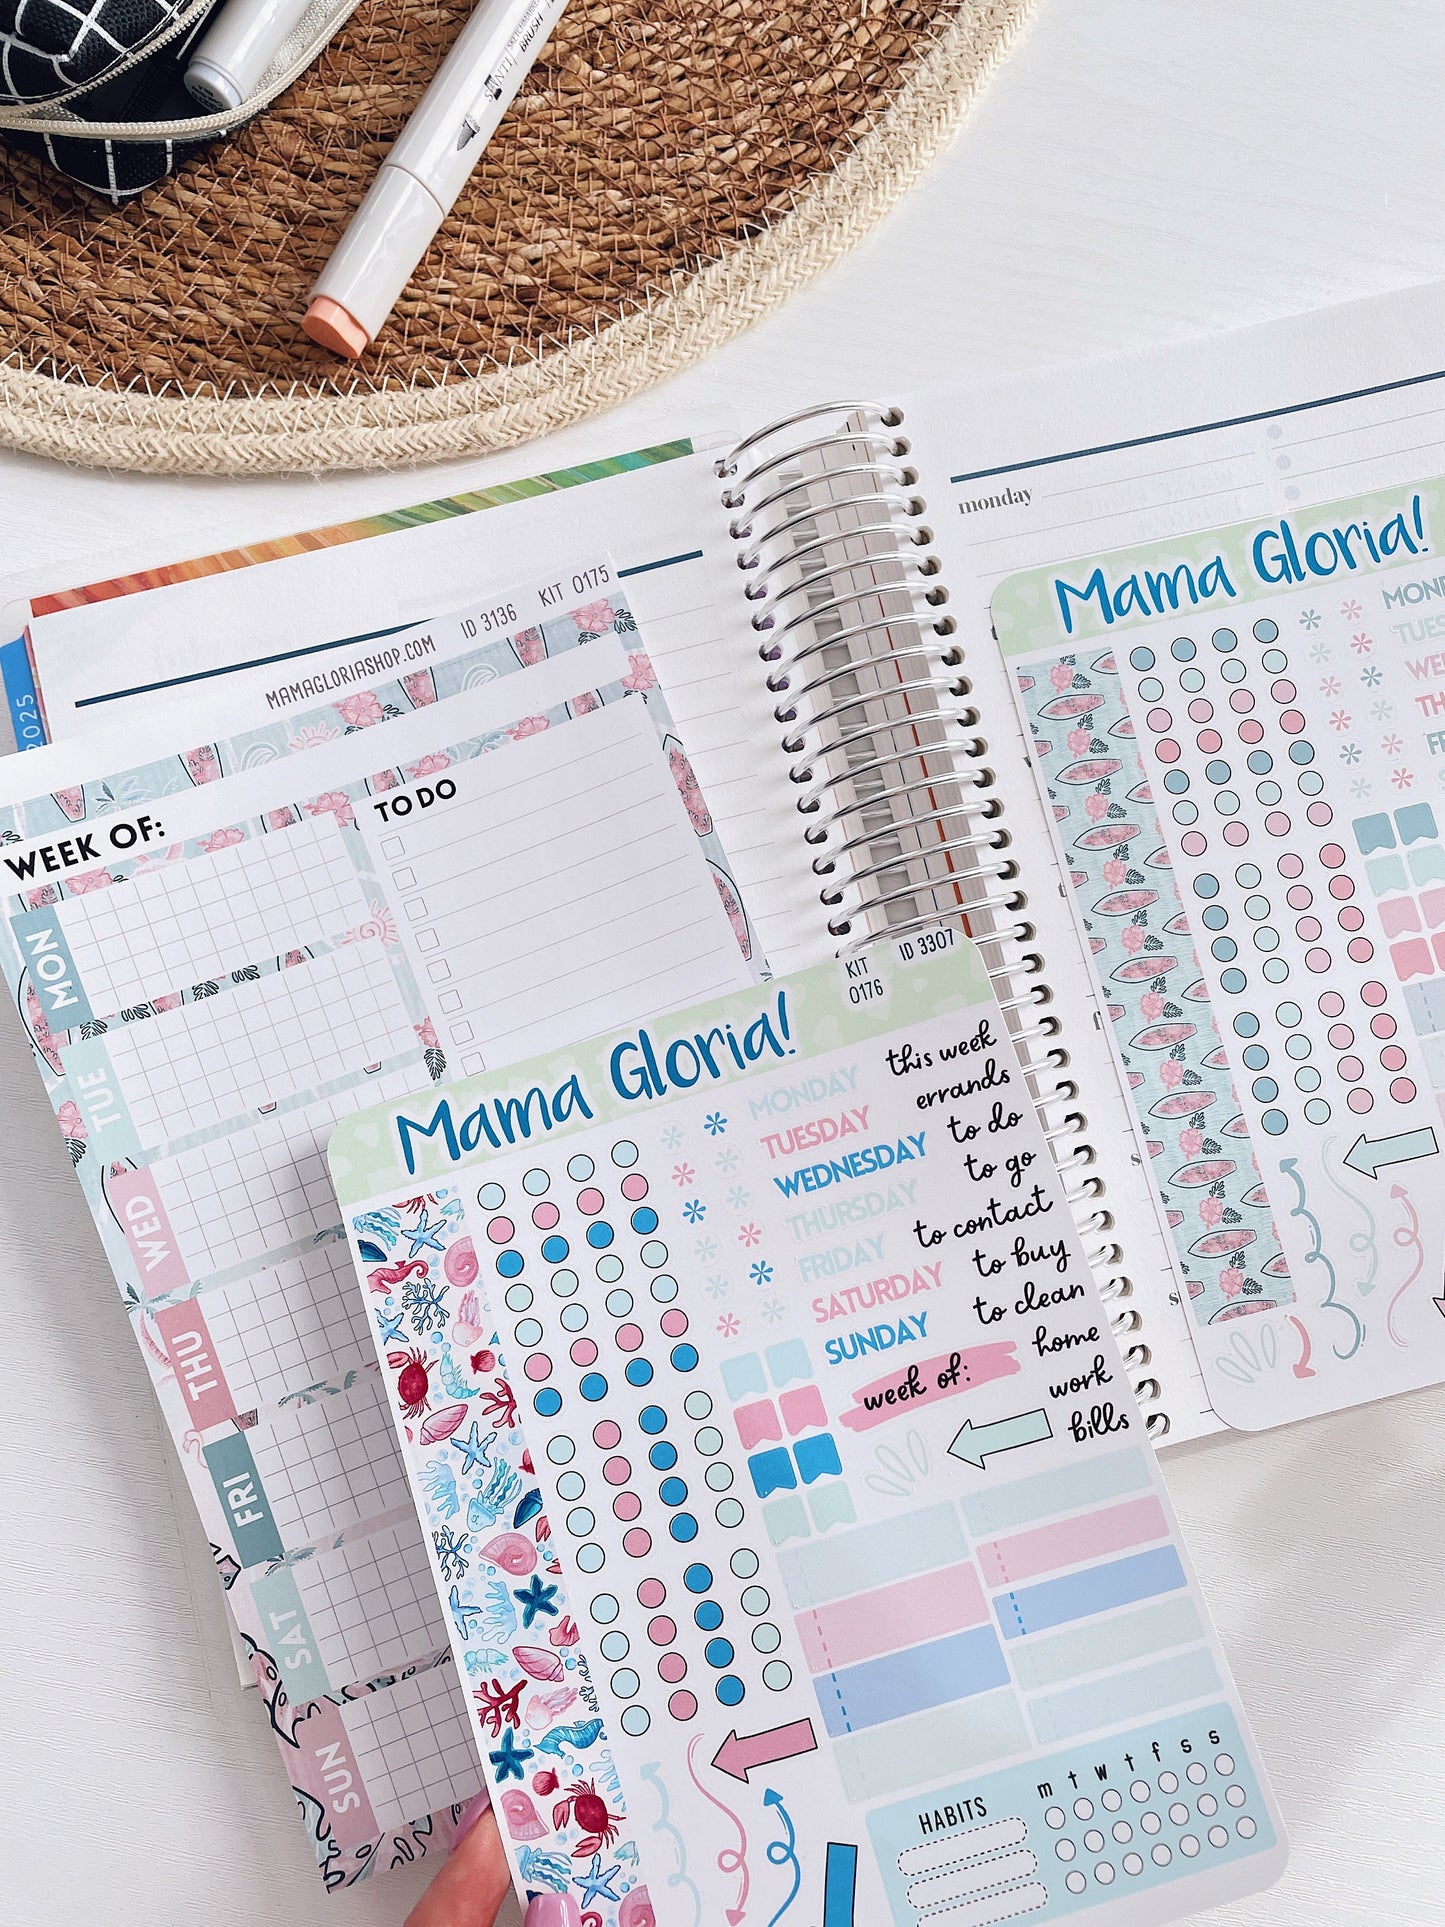 SKETCHMARKER
BRUSH
monday
2025
MAMAGLORIASHOP.COM ID 3136 KIT 0175
WEEK OF:
TO DO
MON
TUE
WED
THU
FRI
SAT
SUN
Mama Gloria!
KIT
0176
ID 3307
MONDAY
TUESDAY
WEDNESDAY
THURSDAY
FRIDAY
SATURDAY
SUNDAY
week of:
this week
errands
to do
to go
to contact
to buy
to clean
home
work
bills
HABITS
m t w t f s s
Mama Gloria!